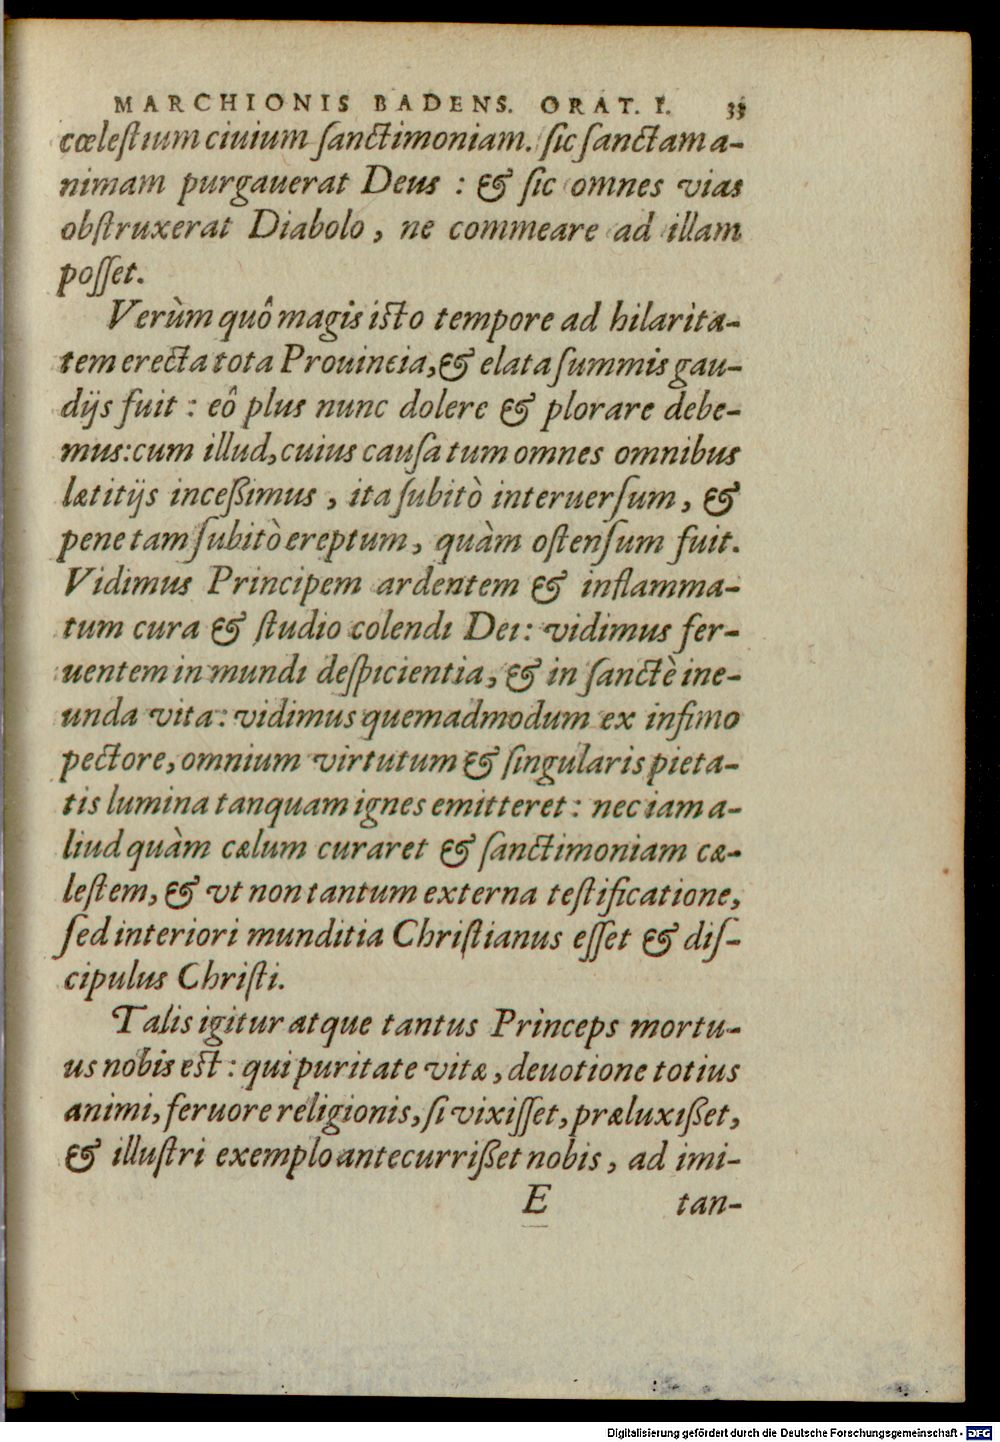 MARCHIONIS BADENS. ORAT. I. 33
cœleſtium ciuium ſanctimoniam. ſic ſanctam a-
nimam purgauerat Deus : & ſic omnes vias
obſtruxerat Diabolo, ne commeare ad illam
poſſet.
Verùm quô magis isto tempore ad hilarita-
tem erecta tota Prouincia, & elata ſummis gau-
dijs fuit : eô plus nunc dolere & plorare debe-
mus: cum illud, cuius cauſa tum omnes omnibus
lætitijs inceßimus, ita ſubitò interuerſum, &
pene tam ſubitò ereptum, quàm oſtenſum fuit.
Vidimus Principem ardentem & inflamma-
tum cura & ſtudio colendi Dei: vidimus fer-
uentem in mundi deſpicientia, & in ſanctè ine-
unda vita: vidimus quemadmodum ex infimo
pectore, omnium virtutum & ſingularis pieta-
tis lumina tanquam ignes emitteret: nec iam a-
liud quàm cælum curaret & ſanctimoniam cæ-
leſtem, & vt non tantum externa teſtificatione,
ſed interiori munditia Chriſtianus eſſet & diſ-
cipulus Chriſti.
Talis igitur atque tantus Princeps mortu-
us nobis est: qui puritate vitæ, deuotione totius
animi, feruore religionis, ſi vixiſſet, præluxißet,
& illuſtri exemplo antecurrißet nobis, ad imi-
E tan-
Digitalisierung gefördert durch die Deutsche Forschungsgemeinschaft - DFG